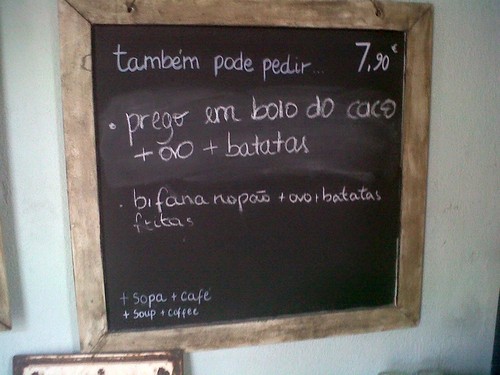 também pode pedir... 7,90€
• prego em bolo do caco
+ ovo + batatas
• bifana no pão + ovo + batatas
fritas
+ sopa + café
+ soup + coffee